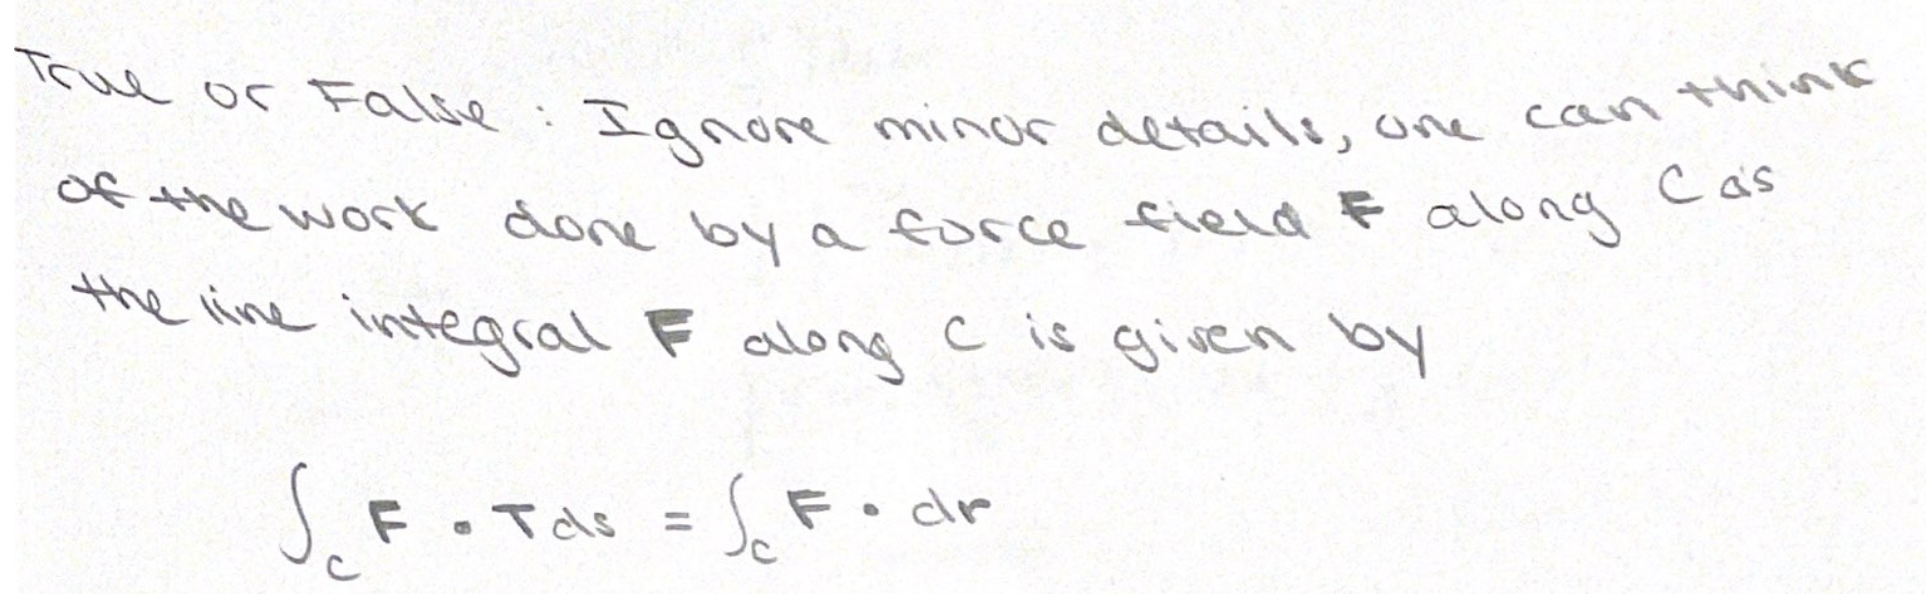 True or False: Ignore minor details, one can think
of the work done by a force field F along C as
the line integral F along C is given by
∫_C F · T ds = ∫_C F · dr